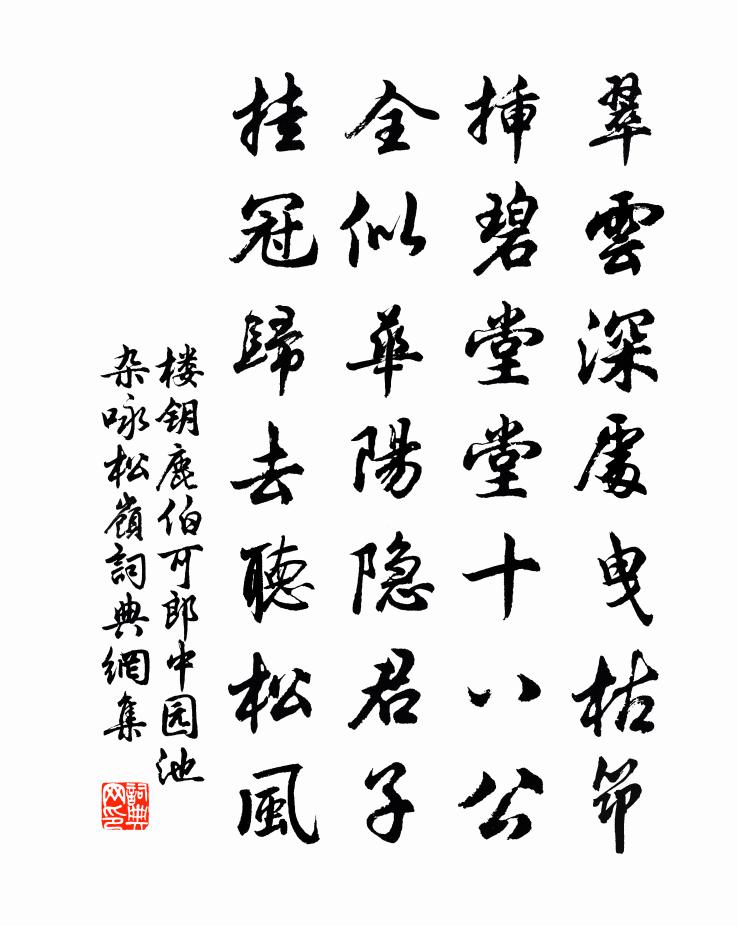 翠雲深處曳枯筇
挿碧堂堂十八公
全似華陽隐君子
挂冠歸去聽松風
楼钥鹿伯可郎中园池
杂咏松嶺詞典網集
詞典网印